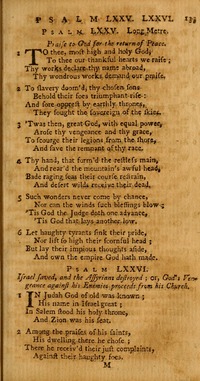 PSALM LXXV. LXXVI. 133
PSALM LXXV. Long Metre.
Praise to God for the return of Peace.
1 TO thee, most high and holy God,
To thee our thankful hearts we raise;
Thy works declare thy name abroad,
Thy wondrous works demand our praise.
2 To slavery doom'd, thy chosen sons
Beheld their foes triumphant rise:
And sore opprest by earthly thrones,
They sought the sovereign of the skies.
3 'Twas then, great God, with equal power,
Arose thy vengeance and thy grace,
To scourge their legions from the shore,
And save the remnant of thy race.
4 Thy hand, that form'd the restless main,
And rear'd the mountain's awful head,
Bade raging seas their course restrain,
And desert wilds receive their dead.
5 Such wonders never come by chance,
Nor can the winds such blessings blow;
'Tis God the Judge doth one advance,
'Tis God that lays another low.
6 Let haughty tyrants sink their pride,
Nor lift so high their scornful head;
But lay their impious thoughts aside,
And own the empire God hath made.
PSALM LXXVI.
Israel saved, and the Assyrians destroyed; or, God's Ven-
geance against his Enemies proceeds from his Church.
1 IN Judah God of old was known;
His name in Israel great;
In Salem stood his holy throne,
And Zion was his seat.
2 Among the praises of his saints,
His dwelling there he chose;
There he receiv'd their just complaints,
Against their haughty foes.
M